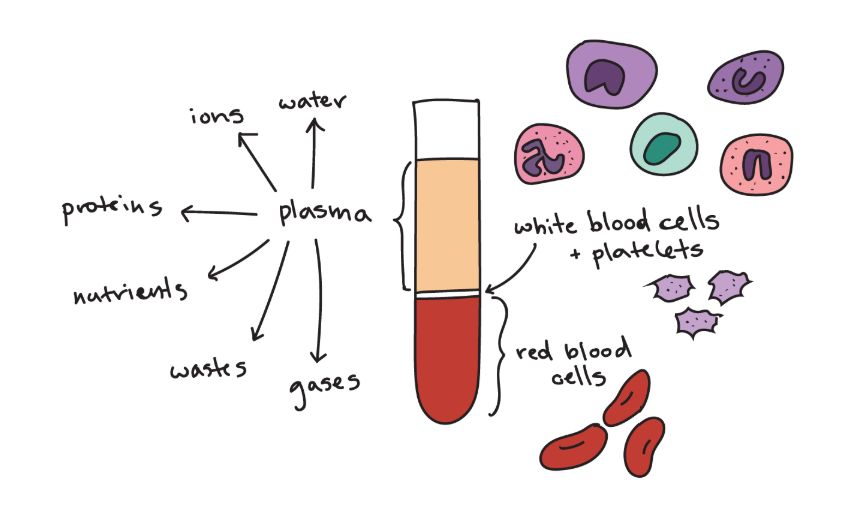 ions
water
proteins
plasma
nutrients
wastes
gases
white blood cells
+ platelets
red blood
cells